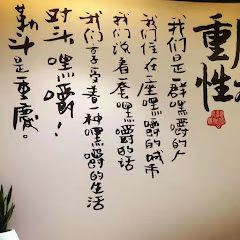 重性
我们是一群嘿嚼的人
我们住在一座嘿嚼的城市
我们说着一套嘿嚼的话
我们享受着一种嘿嚼的生活
对头嘿嚼！
勒斗是重慶。